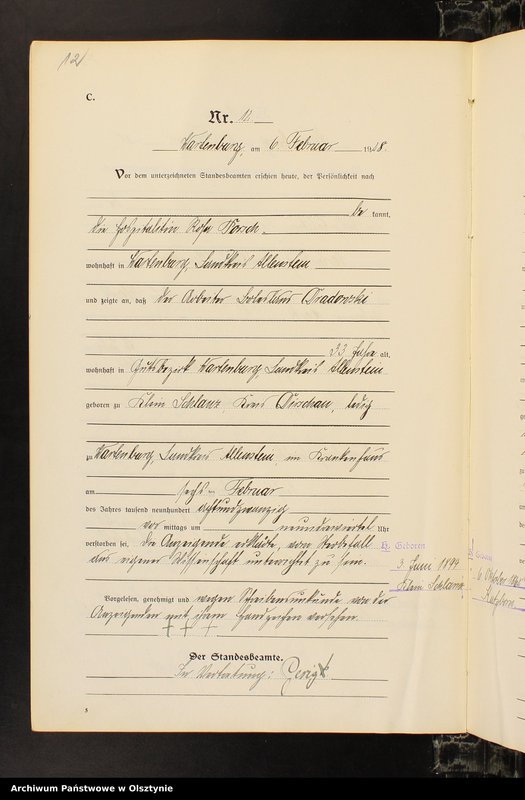 12
C.
Nr. 12
Wartenburg, am 6. Februar 1928.
Vor dem unterzeichneten Standesbeamten erschien heute, der Persönlichkeit nach
be kannt,
die Hospitalitin Rosa
wohnhaft in Wartenburg, Landkreis Allenstein
und zeigte an, daß der Arbeiter Boleslaus
33 Jahre alt,
wohnhaft in Gutsbezirk Wartenburg, Landkreis Allenstein
geboren zu Klein Schlanz, Kreis Dirschau, ledig
zu Wartenburg, Landkreis Allenstein, im Krankenhaus
am sechsten Februar
des Jahres tausend neunhundert achtundzwanzig
vor mittags um Uhr
verstorben sei. Die Anzeigende erklärte, vom Sterbefall
aus eigener Wissenschaft unterrichtet zu sein.
H. Geboren
3. Juni 1894
Klein Schlanz
Vorgelesen, genehmigt und wegen Schreibensunkunde von der
Anzeigenden mit ihrem Handzeichen versehen.
+ + +
Der Standesbeamte.
In Vertretung:
5
Archiwum Państwowe w Olsztynie